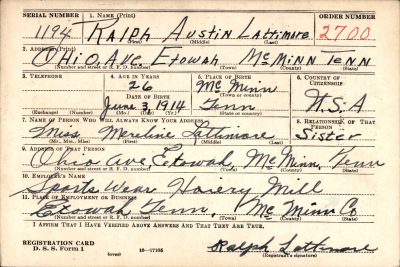 SERIAL NUMBER 1. NAME (Print) ORDER NUMBER
1194 RALPH AUSTIN LATTIMORE 2700
(First) (Middle) (Last)
2. ADDRESS (Print)
OHIO, AVE, ETOWAH MCMINN TENN
(Number and street or R. F. D. number) (Town) (County) (State)
3. TELEPHONE 4. AGE IN YEARS 5. PLACE OF BIRTH 6. COUNTRY OF CITIZENSHIP
26 Mc Minn
DATE OF BIRTH (Town or county)
June 3, 1914 Tenn U.S.A
(Exchange) (Number) (Mo.) (Day) (Yr.) (State or country)
7. NAME OF PERSON WHO WILL ALWAYS KNOW YOUR ADDRESS 8. RELATIONSHIP OF THAT PERSON
Miss Lattimore Sister
(Mr., Mrs., Miss) (First) (Middle) (Last)
9. ADDRESS OF THAT PERSON
Ohio Ave Etowah, McMinn, Tenn
(Number and street or R. F. D. number) (Town) (County) (State)
10. EMPLOYER'S NAME
Sports Wear Hosery Mill
11. PLACE OF EMPLOYMENT OR BUSINESS
Etowah Tenn, Mc Minn Co
(Number and street or R. F. D. number) (Town) (County) (State)
I AFFIRM THAT I HAVE VERIFIED ABOVE ANSWERS AND THAT THEY ARE TRUE.
REGISTRATION CARD
D. S. S. Form 1 (over) 16—17105 Ralph Lattimore
(Registrant's signature)